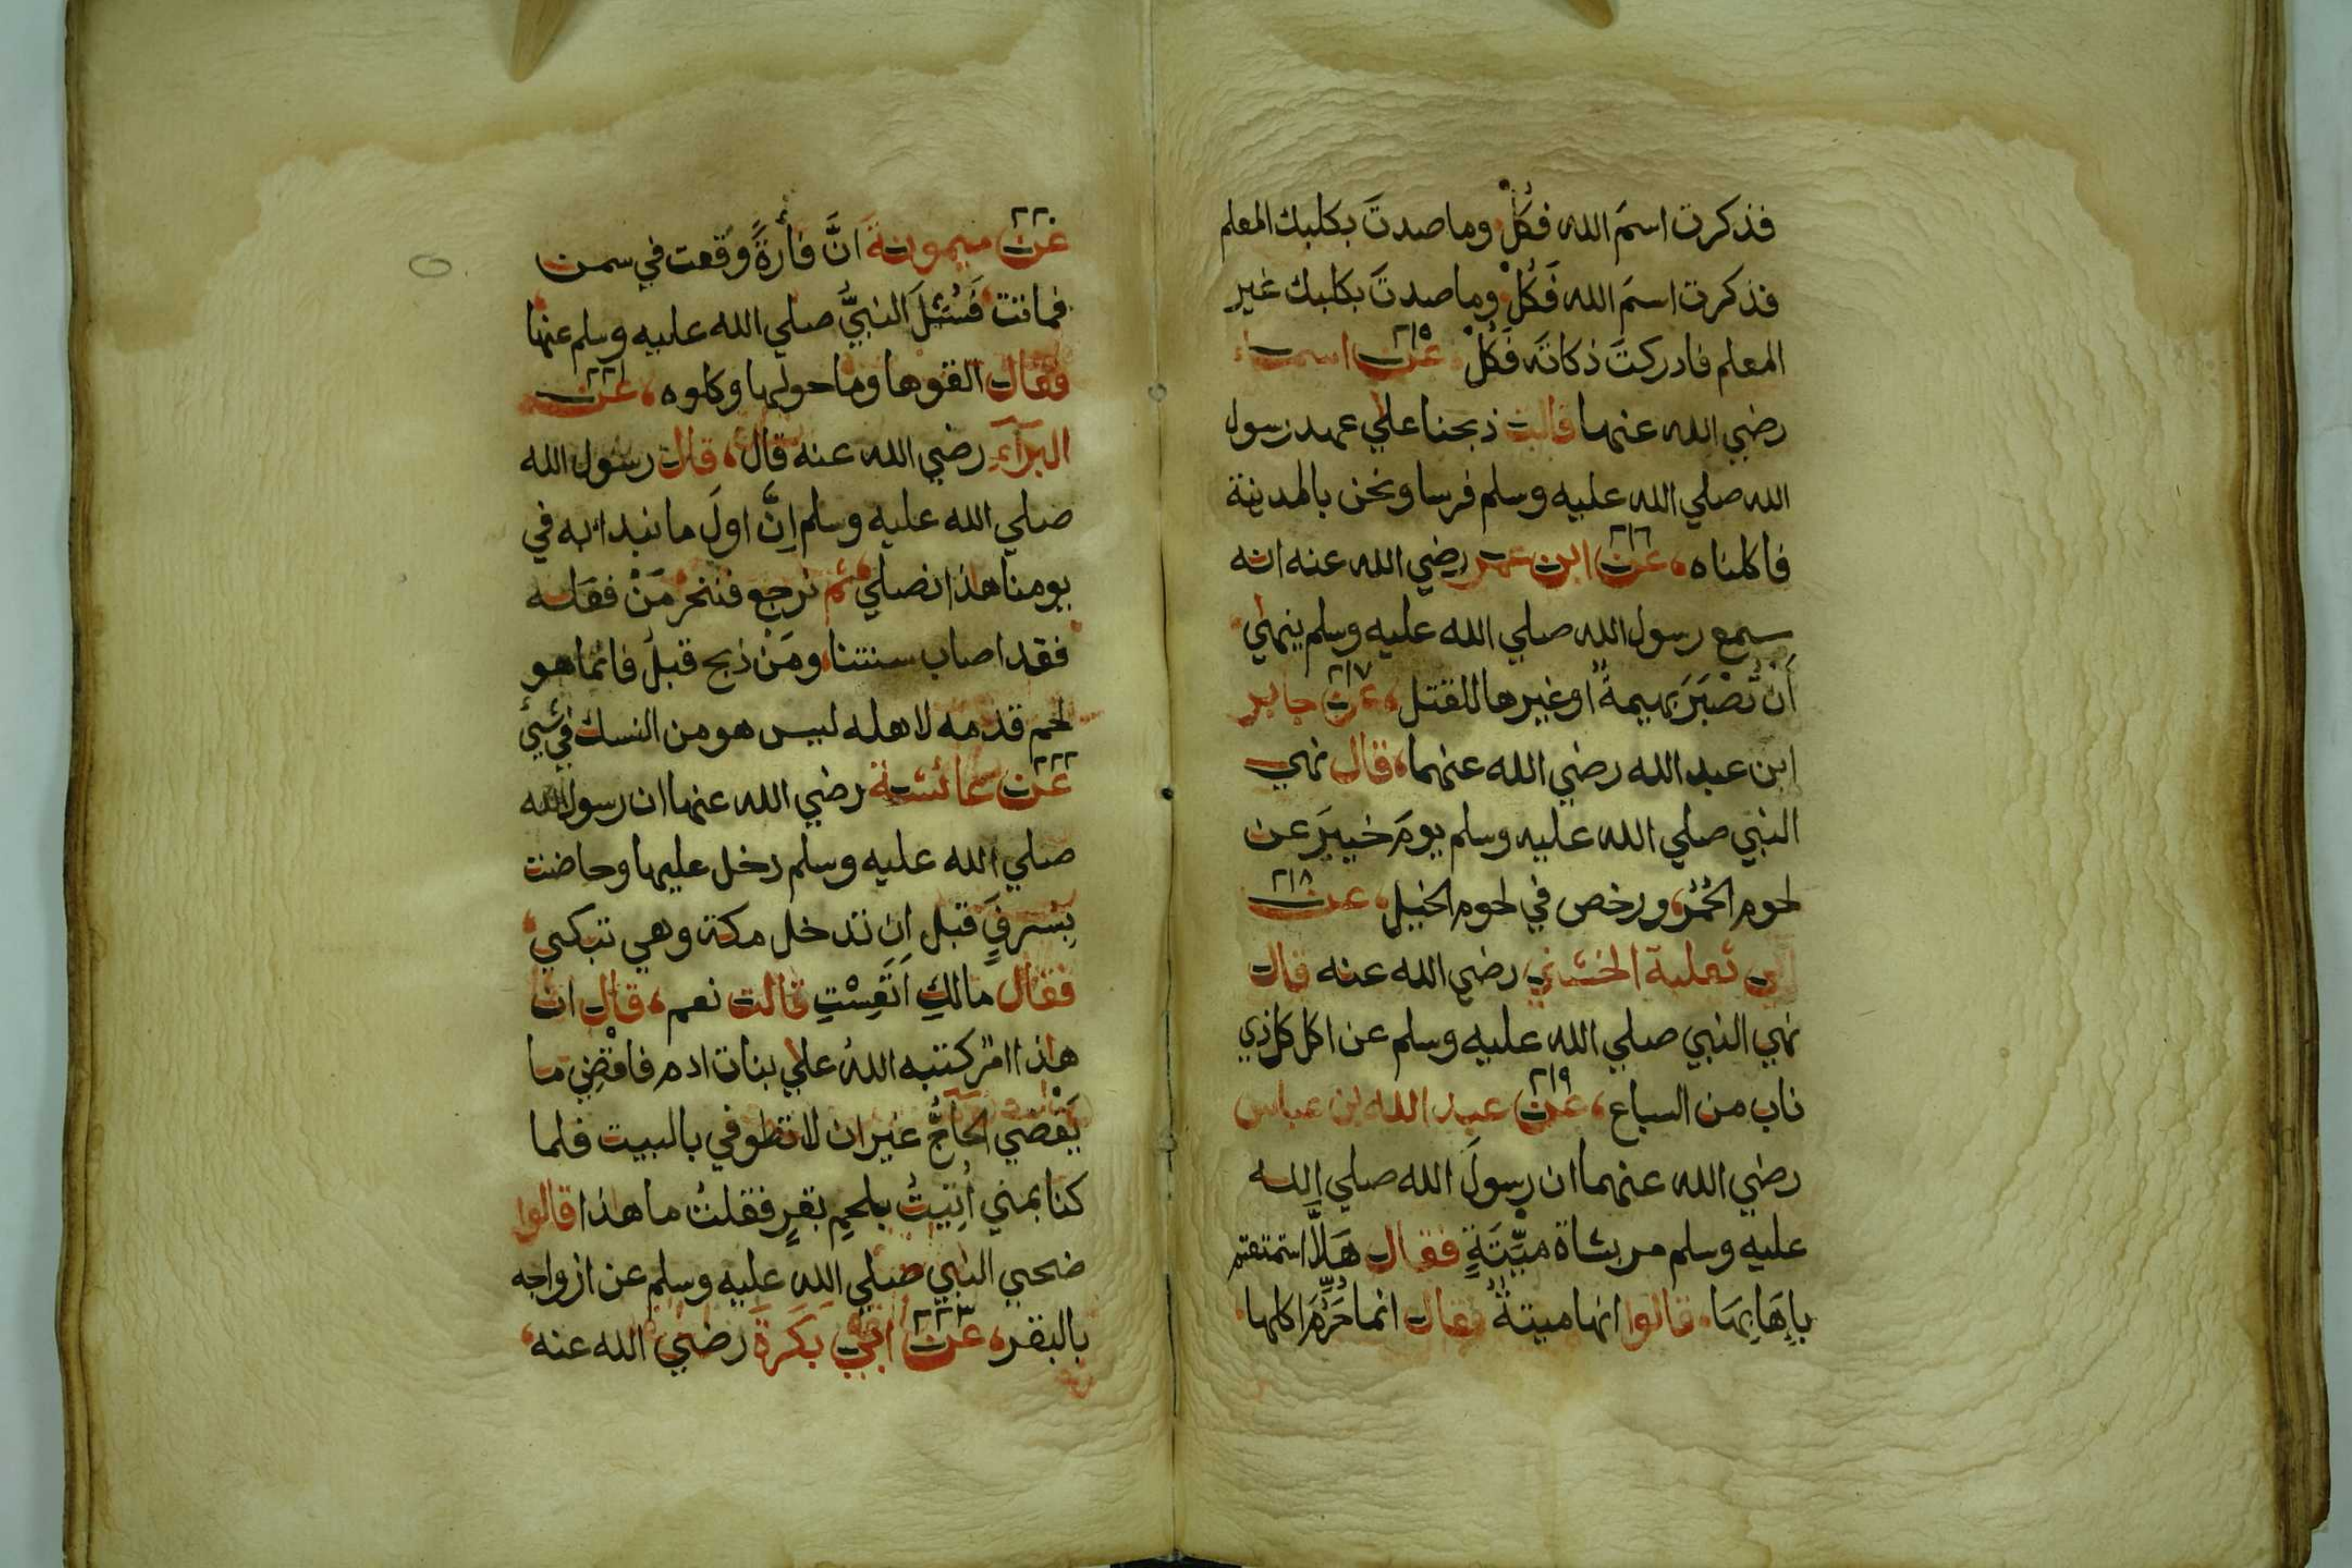 فذكرت اسمَ الله فكُلْ وما صدتَ بكلبك المعلم
فذكرت اسمَ الله فَكُلْ وما صدتَ بكلبك غير
المعلم فادركتَ ذكاتَه فَكُلْ ٢١٥ عن اسماء
رضي الله عنها قالت ذبحنا علي عهد رسول
الله صلي الله عليه وسلم فرسا ونحن بالمدينة
فاكلناه، ٢١٦ عن ابن عمر رضي الله عنه انه
سمع رسول الله صلي الله عليه وسلم ينهي
أن تُصْبَرَ بهيمةٌ او غيرها للقتل، ٢١٧ عن جابر
ابن عبد الله رضي الله عنهما، قال نهي
النبي صلي الله عليه وسلم يومَ خيبرَ عن
لحوم الحُمُر، ورخص في لحوم الخيل، ٢١٨ عن
ابي ثعلبة الخشني رضي الله عنه قال
نهي النبي صلي الله عليه وسلم عن اكل كل ذي
ناب من السباع، ٢١٩ عن عبد الله بن عباس
رضي الله عنهما ان رسولَ الله صلي الله
عليه وسلم مر بشاة ميِّتَةٍ فقال هَلَّا استمتعتم
بإِهَابِهَا، قالوا انها ميتةٌ فقال انما حُرِّمَ اكلها
٢٢٠ عن ميمونةَ انَّ فأرةً وقعت في سمن
فماتت فَسُئِلَ النبيُّ صلي الله عليه وسلم عنها
فقال القوها وما حولها وكلوه، ٢٢١ عن
البرآءِ رضي الله عنه قال، قال رسول الله
صلي الله عليه وسلم إِنَّ اولَ ما نبدا به في
يومنا هذا نصلي ثم نرجع فننحر مَنْ فعله
فقد اصاب سنتنا، ومَنْ ذبح قبلُ فانما هو
لحم قدمه لاهله ليس هو من النسك في شيئ
٢٢٢ عن عائشة رضي الله عنها ان رسول الله
صلي الله عليه وسلم دخل عليها وحاضت
بِسَرفٍ قبل ان تدخل مكة وهي تبكي،
فقال مالكِ اَنَفِسْتِ قالت نعم، قال ان
هذا امر كتبه اللهُ علي بنات ادم فاقْضِي ما
يَقْضي الحاجُّ غير ان لا تطوفي بالبيت فلما
كنا بمني اُتِيتُ بلحمِ بقرٍ فقلتُ ما هذا قالوا
ضحي النبي صلي الله عليه وسلم عن ازواجه
بالبقر، ٢٢٣ عن ابي بَكَرةَ رضي الله عنه،